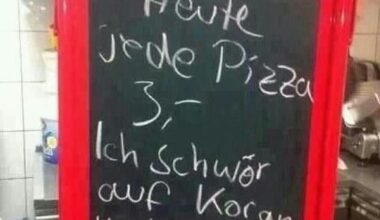 Heute
jede Pizza
3,-
Ich schwör
auf Koran